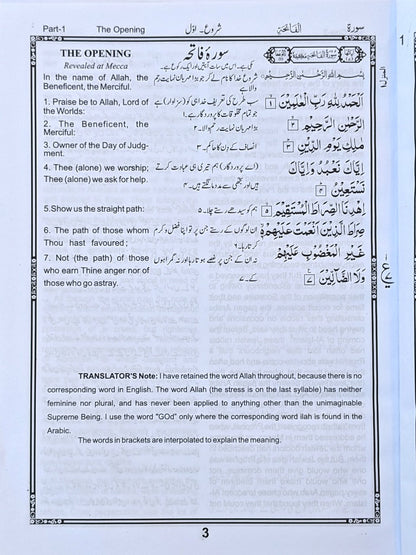 Part-1 The Opening شروع۔ اوّل الفاتحة سورة
THE OPENING سورۂ فاتحہ
Revealed at Mecca
In the name of Allah, the
Beneficent, the Merciful.
بِسْمِ اللهِ الرَّحْمٰنِ الرَّحِيْمِ
شروع خدا کا نام لے کر جو بڑا مہربان نہایت رحم
والا ہے
1. Praise be to Allah, Lord of
the Worlds:
سب طرح کی تعریف خدا ہی کو (سزاوار) ہے
جو تمام مخلوقات کا پروردگار ہے۔۱
اَلْحَمْدُ لِلّٰهِ رَبِّ الْعٰلَمِيْنَ ١
2. The Beneficent, the
Merciful:
بڑا مہربان نہایت رحم والا۔۲
الرَّحْمٰنِ الرَّحِيْمِ ٢
3. Owner of the Day of Judg-
ment.
انصاف کے دن کا حاکم۔۳
مٰلِكِ يَوْمِ الدِّيْنِ ٣
4. Thee (alone) we worship;
Thee (alone) we ask for help.
(اے پروردگار) ہم تیری ہی عبادت کرتے
ہیں اور تجھی سے مدد مانگتے ہیں۔۴
اِيَّاكَ نَعْبُدُ وَاِيَّاكَ
نَسْتَعِيْنُ ٤
5.Show us the straight path:
ہم کو سیدھے رستے چلا۔۵
اِهْدِنَا الصِّرَاطَ الْمُسْتَقِيْمَ ٥
6. The path of those whom
Thou hast favoured ;
ان لوگوں کے رستے جن پر تو اپنا فضل و کرم
کرتا رہا۔۶
صِرَاطَ الَّذِيْنَ اَنْعَمْتَ عَلَيْهِمْ ٦
7. Not (the path) of those
who earn Thine anger nor of
those who go astray.
نہ ان کے جن پر غصے ہوتا رہا اور نہ گمراہوں
کے۔۷
غَيْرِ الْمَغْضُوْبِ عَلَيْهِمْ
وَلَا الضَّآلِّيْنَ ٧
TRANSLATOR'S Note: I have retained the word Allah throughout, because there is no
corresponding word in English. The word Allah (the stress is on the last syllable) has neither
feminine nor plural, and has never been applied to anything other than the unimaginable
Supreme Being. I use the word "GOd" only where the corresponding word ilah is found in the
Arabic.
The words in brackets are interpolated to explain the meaning.
3
1